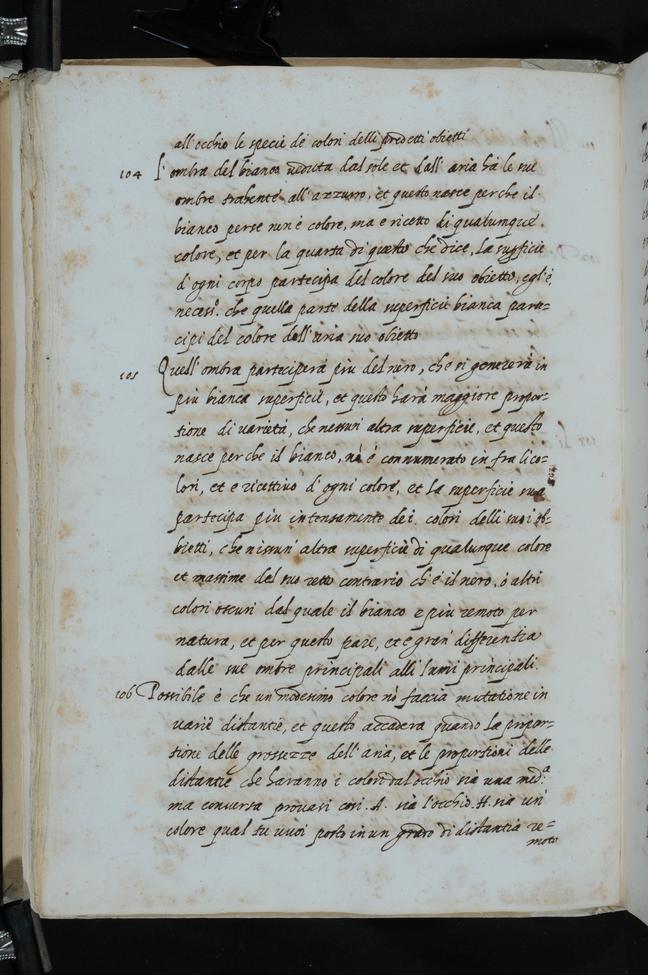 all'occhio le specie de colori delli predetti obietti
104 L'ombra del bianco veduta dal sole et dall'aria ha le sue
ombre trahente all'azzurro, et questo nasce perche il
bianco perse non è colore, ma e ricetto di qualunque
colore, et per la quarta di questo che dice, la superficie
d'ogni corpo partecipa del colore del suo obietto, egl'è,
necess.º che quella parte della superficie bianca parte=
cipi del colore dell'aria suo obietto
105 Quell'ombra participera piu del nero, che si generera in
piu bianca superficie, et questo harà maggiore propor=
tione di varietà, che nessun altra superficie, et questo
nasce perche il bianco, nō è connumerato in fra li co=
lori, et e ricettivo d'ogni colore, et la superficie sua
partecipa piu intensamente de i colori delli suoi ob=
bietti, che nissun' altra superficie di qualunque colore
et massime del suo retto contrario ch'è il nero, ò altri
colori oscuri dal quale il bianco e piu remoto per
natura, et per questo pare, et è gran' differentia
dalle sue ombre principali alli lumi principali.
106 Possibile è che un' medesimo colore nō faccia mutatione in
varie distantie, et questo accadera quando la propor=
tione delle grossezze dell'aria, et le proportioni delle
distantie che haranno i colori dal'occhio sia una med.ª
ma conversa provasi cosi. A. sia l'occhio. H. sia un'
colore qual tu vuoi posto in un grado di distantia re=
moto